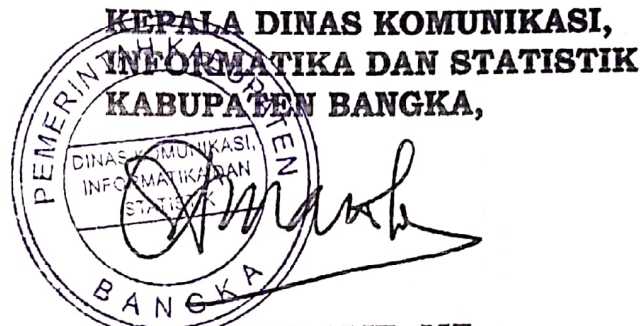 KEPALA DINAS KOMUNIKASI,
INFORMATIKA DAN STATISTIK
KABUPATEN BANGKA,
PEMERINTAH KABUPATEN
DINAS KOMUNIKASI,
INFORMATIKA DAN
STATISTIK
BANGKA